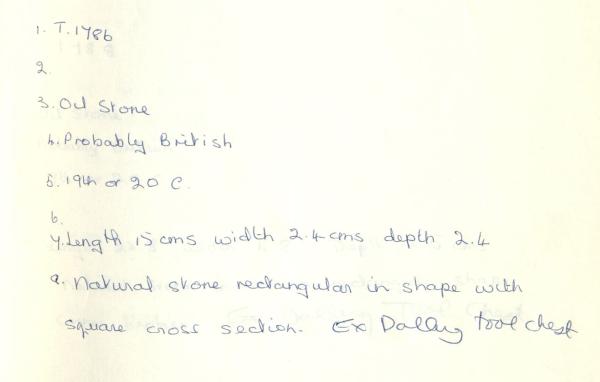 1. T.1786
2.
3. Oil Stone
4. Probably British
5. 19th or 20 C.
6.
7. Length 15 cms width 2.4 cms depth 2.4
9. Natural stone rectangular in shape with
square cross section. Ex Dalley tool chest